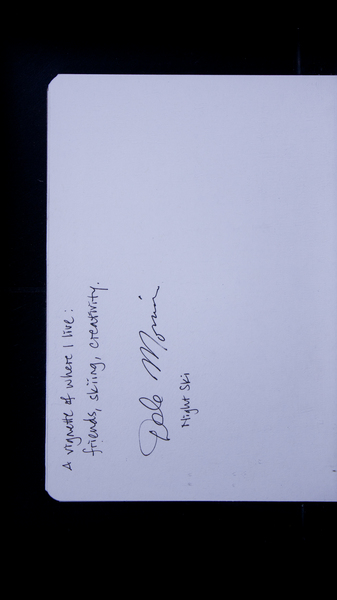 A vignette of where I live:
friends, skiing, creativity.
Night Ski